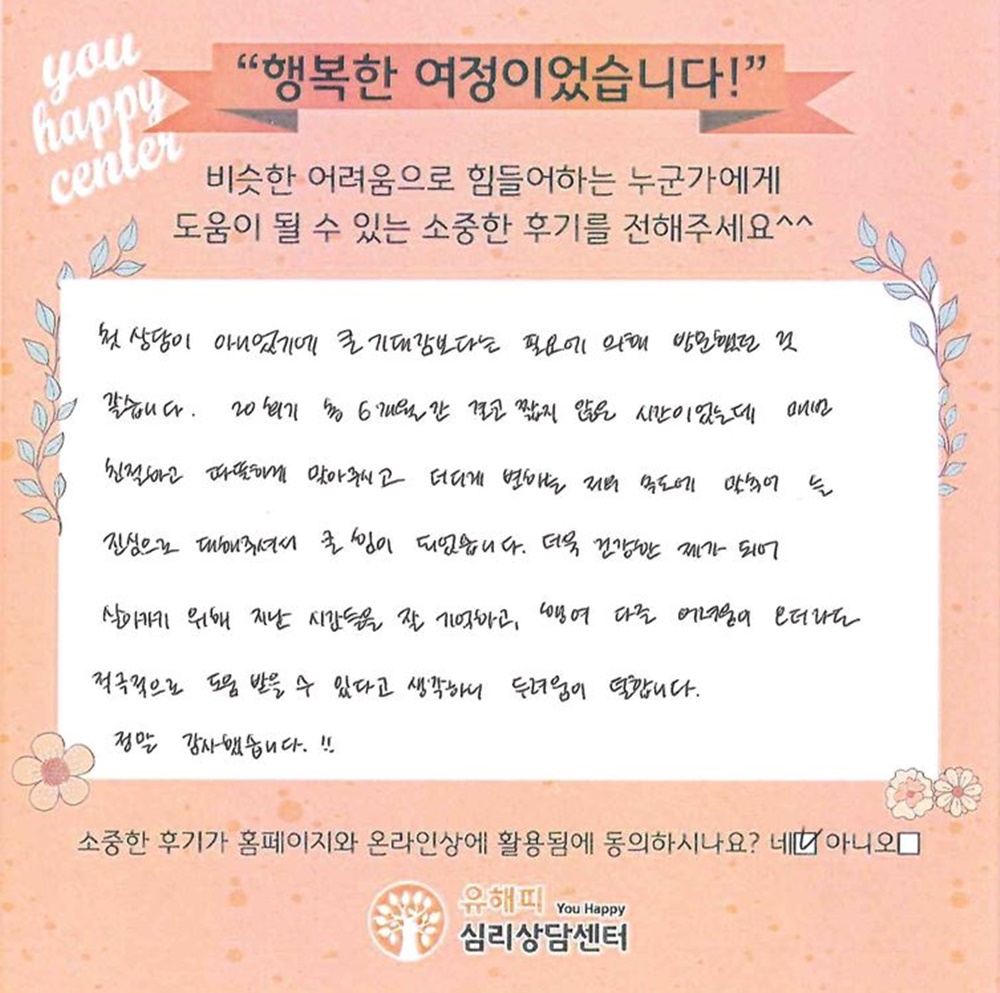 you
happy
center
“행복한 여정이었습니다!”
비슷한 어려움으로 힘들어하는 누군가에게
도움이 될 수 있는 소중한 후기를 전해주세요^^
첫 상담이 아니었기에 큰 기대감보다는 필요에 의해 방문했던 것
같습니다. 20회기 총 6개월간 결코 짧지 않은 시간이었는데 매번
친절하고 따뜻하게 맞아주시고 더디게 변하는 저의 속도에 맞추어 늘
진심으로 대해주셔서 큰 힘이 되었습니다. 더욱 건강한 제가 되어
살아가기 위해 지난 시간들을 잘 기억하고, 행여 다른 어려움이 오더라도
적극적으로 도움 받을 수 있다고 생각하니 두려움이 덜합니다.
정말 감사했습니다. !!
소중한 후기가 홈페이지와 온라인상에 활용됨에 동의하시나요? 네☑ 아니오☐
유해피 You Happy
심리상담센터